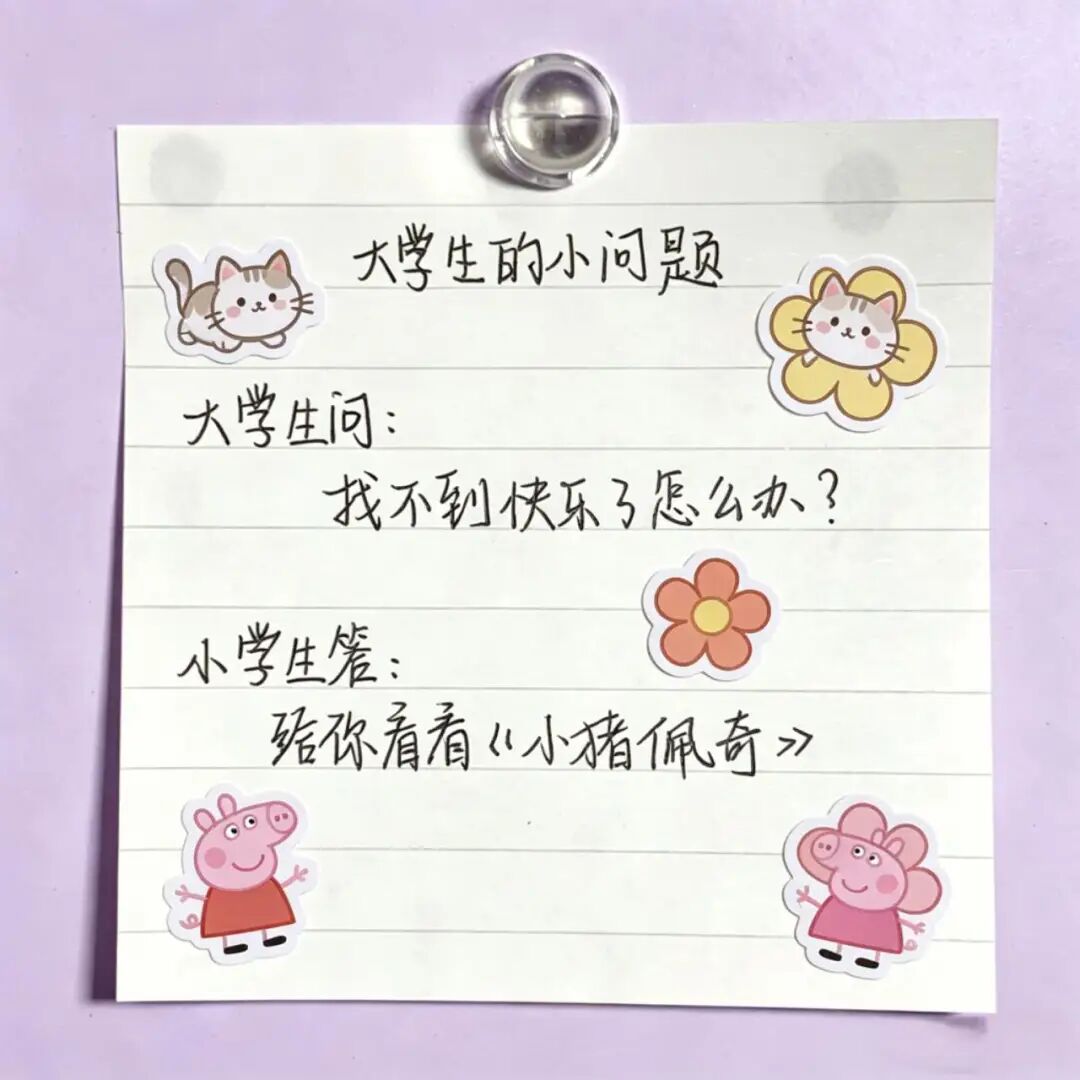 大学生的小问题
大学生问:
找不到快乐了怎么办?
小学生答:
给你看看《小猪佩奇》